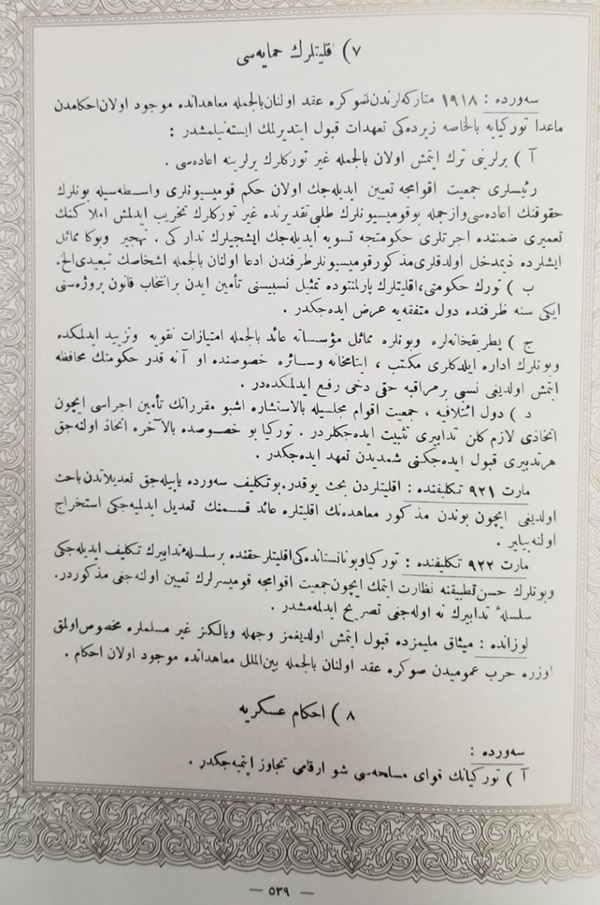 ٧) اقليتلرك حمايه‌سى
سه‌ورده : ١٩١٨ متاركه‌لرندن صوكره عقد اولنان بالجمله معاهداتده موجود اولان احكامدن
ماعدا توركيايه بالخاصه زيرده‌كى تعهدات قبول ايتديرلمك ايسته‌نيلمشدر :
آ ) يرلرينى ترك ايتمش اولان بالجمله غير توركلرك يرلرينه اعاده‌سى .
رئيسلرى جمعيت اقوامجه تعيين ايديله‌جك اولان حكم قوميسيونلرى واسطه‌سيله بونلرك
حقوقنك اعاده‌سى واز جمله بو قوميسيونلرك طلبى تقديرنده غير توركلرك تخريب ايدلمش املاكنك
تعميرى ضمننده اجرتلرى حكومتجه تسويه ايديله‌جك ايشجيلرك تداركى . تهجير وبوكا مماثل
ايشلرده ذيمدخل اولدقلرى مذكور قوميسيونلر طرفندن ادعا اولنان بالجمله اشخاصك تبعيدى الخ.
ب ) تورك حكومتى، اقليتلرك پارلمنتوده تمثيل نسبيسنى تأمين ايدن بر انتخاب قانون پروژه‌سنى
ايكى سنه ظرفنده دول متفقه‌يه عرض ايده‌جكدر .
ج ) پطريقخانه‌لره وبونلره مماثل مؤسساته عائد بالجمله امتيازات تقويه وتزييد ايدلمكده
وبونلرك اداره ايلدكلرى مكتب ، ايتامخانه وسائره خصوصنده او آنه قدر حكومتك محافظه
ايتمش اولديغى نسبى بر مراقبه حقى دخى رفع ايدلمكده‌در .
د ) دول ائتلافيه ، جمعيت اقوام مجلسيله بالاستشاره اشبو مقرراتك تأمين اجراسى ايچون
اتخاذى لازم كلن تدابيرى تثبيت ايده‌جكلردر . توركيا بو خصوصده بالآخره اتخاذ اولنه‌جق
هر تدبيرى قبول ايده‌جكنى شمديدن تعهد ايده‌جكدر .
مارت ٩٢١ تكليفنده : اقليتلردن بحث يوقدر. بو تكليف سه‌ورده ياپيله‌جق تعديلاتدن باحث
اولديغى ايچون بوندن مذكور معاهده‌نك اقليتلره عائد قسمنك تعديل ايدلميه‌جكى استخراج
اولنه‌بيلير .
مارت ٩٢٢ تكليفنده : توركيا و يونانستانده‌كى اقليتلر حقنده بر سلسله تدابيرك تكليف ايديله‌جكى
وبونلرك حسن تطبيقنه نظارت ايتمك ايچون جمعيت اقوامجه قوميسرلرك تعيين اولنه‌جغى مذكوردر.
سلسلهٔ تدابيرك نه اوله‌جغى تصريح ايدلمه‌مشدر .
لوزانده : ميثاق مليمزده قبول ايتمش اولديغمز وجهله ويالكز غير مسلملره مخصوص اولمق
اوزره حرب عموميدن صوكره عقد اولنان بالجمله بين الملل معاهداتده موجود اولان احكام .
٨) احكام عسكريه
سه‌ورده :
آ ) توركيانك قواى مسلحه‌سى شو ارقامى تجاوز ايتميه‌جكدر .
— ٥٣٩ —